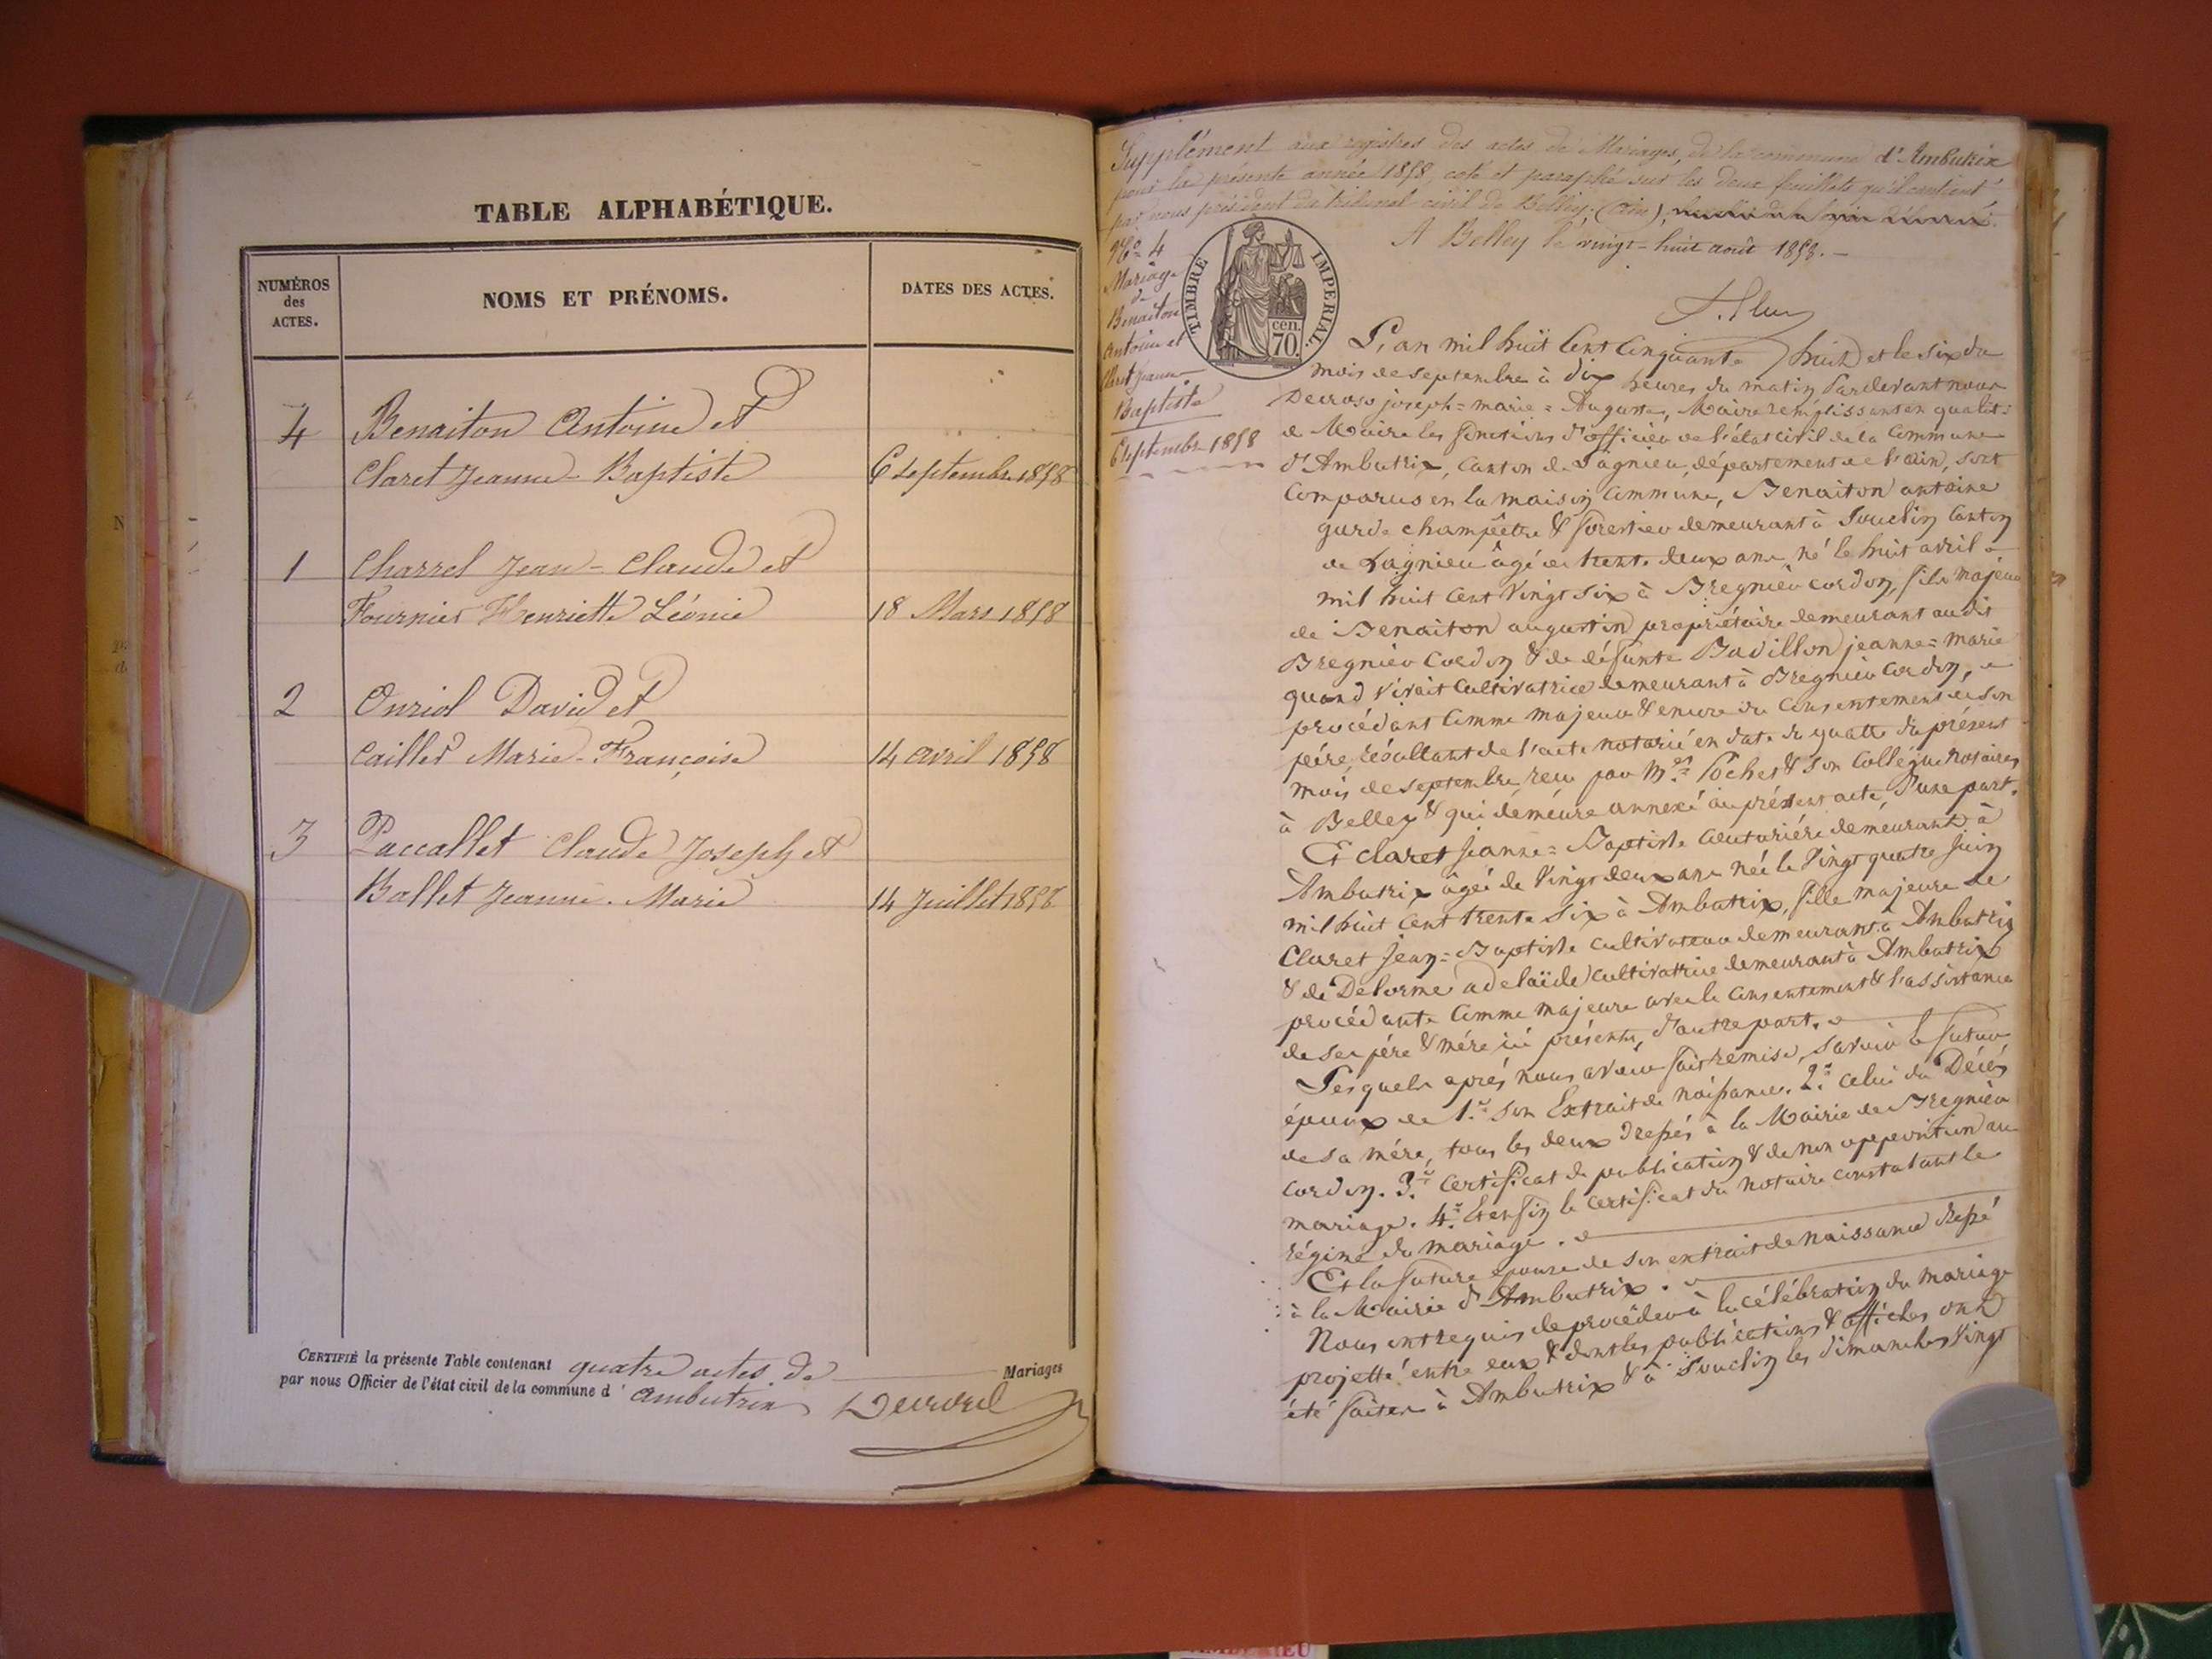 TABLE ALPHABÉTIQUE.
NUMÉROS
des
ACTES.
NOMS ET PRÉNOMS.
DATES DES ACTES.
4 Benaiton Antoine et
Claret Jeanne-Baptiste 6 Septembre 1858
1 Charrel Jean-Claude et
Fournier Henriette Léonie 18 Mars 1858
2 Onriol David et
Caillet Marie-Françoise 14 avril 1858
3 Paccallet Claude Joseph et
Ballet Jeanne-Marie 14 Juillet 1858
CERTIFIÉ la présente Table contenant quatre actes de Mariages
par nous Officier de l'état civil de la commune d'ambutrix
Supplément aux registres des actes de Mariages, de la commune d'Ambutrix
pour la présente année 1858, coté et paraphé sur les deux feuillets qu'il contient
par nous président du tribunal civil de Belley, (Ain),
A Belley le vingt-huit août 1858.-
N° 4
Mariage
de
Benaiton
Antoine et
Claret Jeanne
Baptiste
6 Septembre 1858
TIMBRE IMPERIAL.
70. cen.
L'an mil huit Cent Cinquante huit et le six du
mois de septembre à dix heures du matin Pardevant nous
Decroso joseph=marie=Auguste, Maire remplissant en qualité
de Maire les fonctions d'officier de l'état civil de la Commune
d'Ambutrix, Canton de Lagnieu, département de l'ain, sont
Comparus en la maison Commune, Benaiton antoine
garde champêtre & forestier demeurant à Souclin Canton
de Lagnieu âgé de trente deux ans, né le huit avril
mil huit Cent Vingt six à Bregnier Cordon, fils majeur
de Benaiton augustin propriétaire demeurant audit
Bregnier Cordon & de défunte Bavillon jeanne=marie
quand vivait Cultivatrice demeurant à Bregnier Cordon,
procédant Comme majeur & encore du Consentement de son
père, résultant de l'acte notarié en date du quatre du présent
mois de septembre, reçu par Mes Pochet & son Collégue notaires
à Belley & qui demeure annexé au présent acte, D'une part.
Et claret Jeanne=Baptiste Couturière demeurant à
Ambutrix âgée de Vingt deux ans née le Vingt quatre juin
mil huit Cent trente six à Ambutrix, fille majeure de
Claret Jean=Baptiste Cultivateur demeurant à Ambutrix
& de Delorme adelaïde Cultivatrice demeurant à Ambutrix
procédante Comme majeure avec le Consentement & l'assistance
de ses père & mère ici présents, d'autre part.
Lesquels après nous avoir fait remise, savoir le futur
époux de 1.° son Extrait de naissance. 2.° celui du Décès
de sa mère, tous les deux dressés à la Mairie de Bregnier
Cordon. 3.° Certificat de publication & de non opposition au
mariage. 4.° Et enfin le Certificat du notaire constatant le
régime du mariage.
Et la future épouse de son extrait de naissance dressé
à la Mairie d'Ambutrix.
Nous ont requis de procéder à la célébration du mariage
projetté entre eux & dont les publications & affiches ont
été faites à Ambutrix & à Souclin les dimanches Vingt